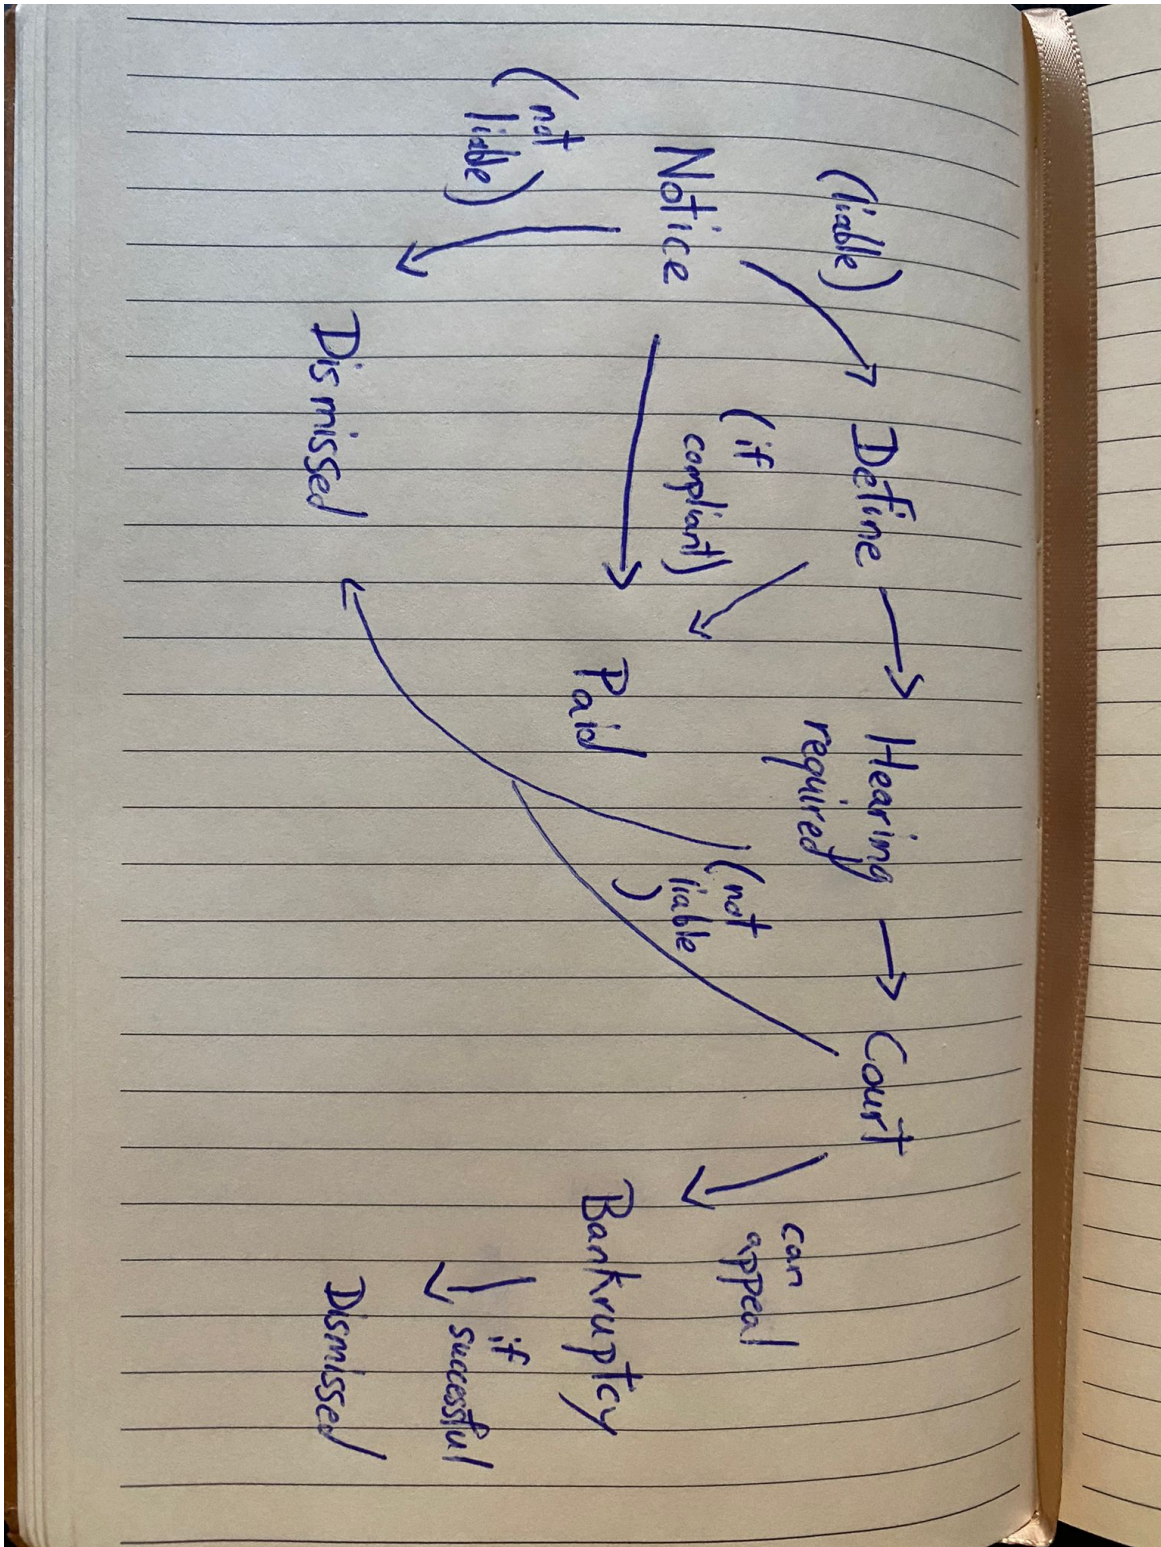 (liable)
Define
Hearing
required
Court
can
appeal
Notice
(if
compliant)
(not
liable
)
(not
liable)
Paid
Bankruptcy
if
successful
Dismissed
Dismissed